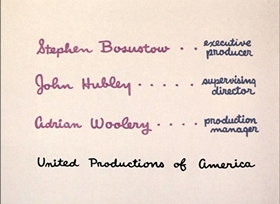 Stephen Bosustow . . . executive producer
John Hubley . . . . . supervising director
Adrian Woolery . . . . production manager
United Productions of America